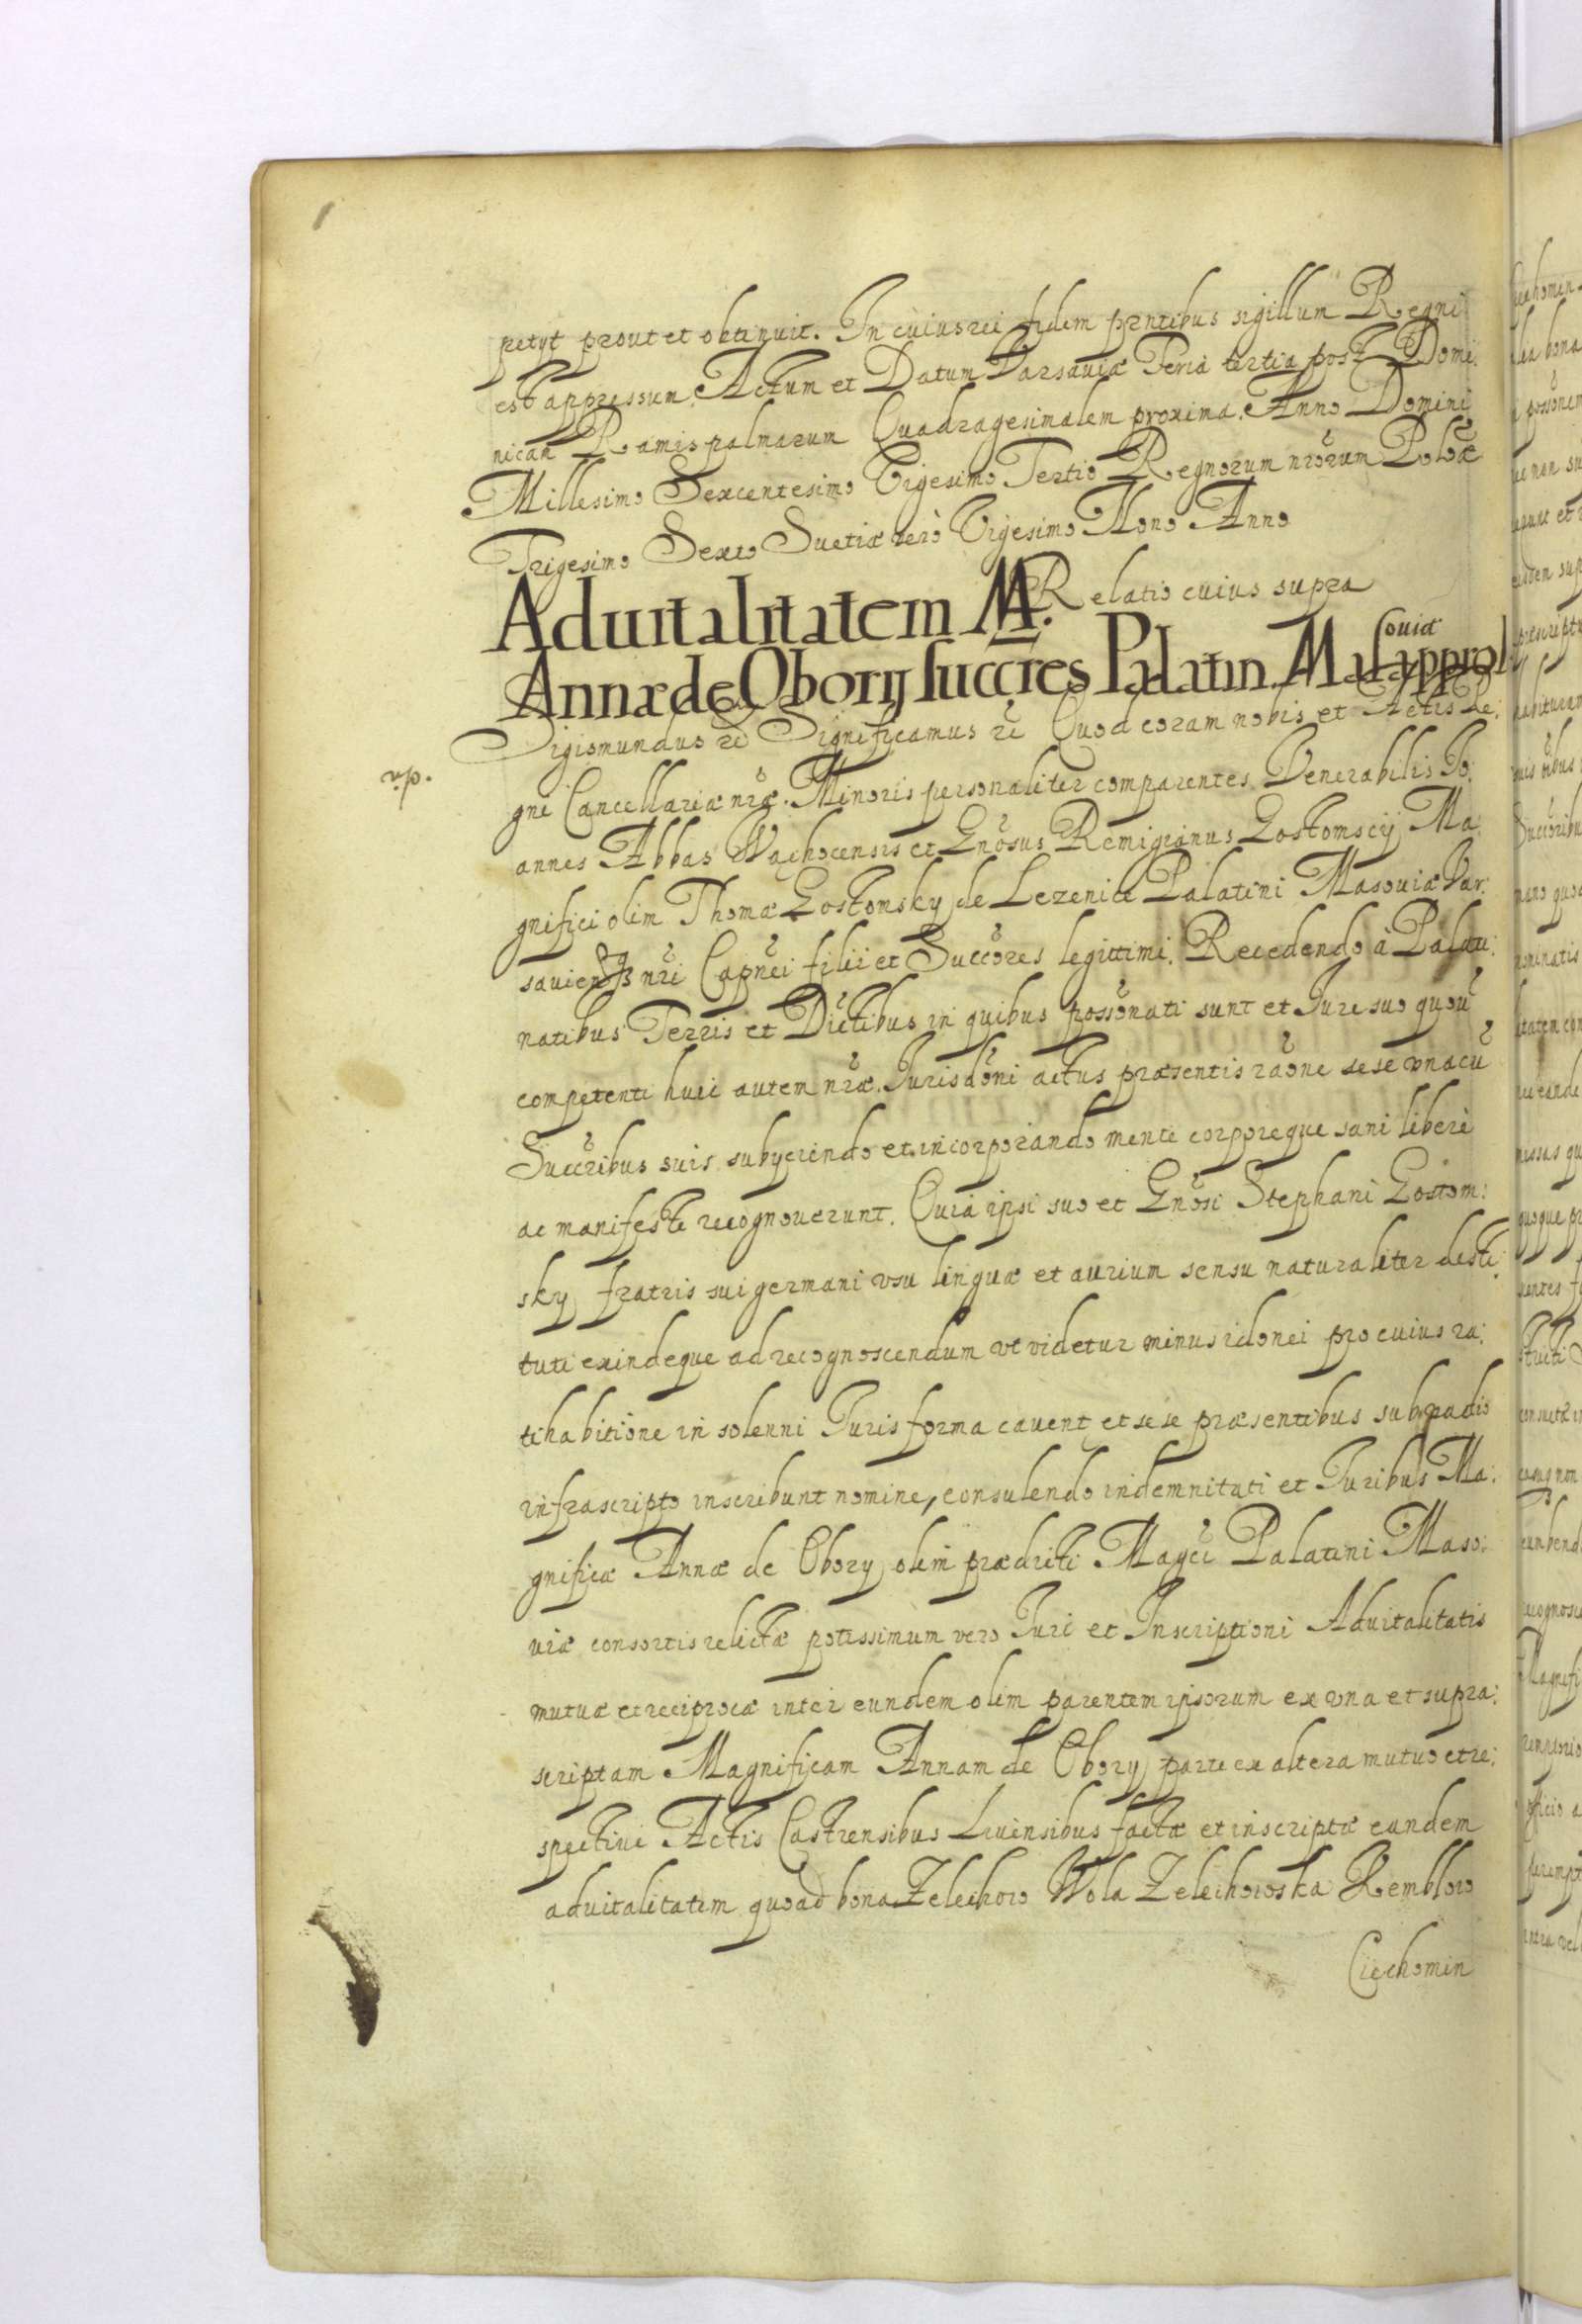 petyt prout et obtinuit. In cuius rei fidem prntibus sigillum Regni
est appressum. Actum et Datum Varsauiæ Feria tertia post Domi:
nicam Ramis palmarum Quadragesimalem proxima. Anno Domini
Millesimo Sexcentesimo Vigesimo Tertio Regnorum nrorum Poloæ
Trigesimo Sexto Suetiæ vero Vigesimo Nono Anno
Relatio cuius supra
Aduitalitatem M.
Annæ de Obory succres Palatin. Masouiæ approb
Sigismundus Significamus Quod coram nobis et Actis Re:
gni Cancellariæ nræ. Minoris personaliter comparentes Venerabilis Jo:
annes Abbas Wachocensis et Gnosus Remigianus Gostomscij Ma:
gnifici olim Thomæ Gostomsky de Lezenice Palatini Masouiæ Var:
sauien nri Capnei filii et Succores legittimi. Recedendo à Palati:
natibus Terris et Dictibus in quibus possonati sunt et Jure suo quouis
competenti huic autem nræ. Jurisdoni actus præsentis raone sese vnacu
Succribus suis subyciendo et incorporando mente corporeque sani liberè
ac manifeste recognouerunt. Quia ipsi suo et Gnosi Stephani Gostom:
sky fratris sui germani vsu linguæ et aurium sensu naturaliter desti:
tuti exindeque ad recognoscendum vt videtur minus idonei pro cuius ra:
tihabitione in solenni Juris forma cauent et sese præsentibus subvadio
infrascripto inscribunt nomine, consulendo indemnitati et Juribus Ma:
gnificæ Annæ de Obory olim prædicti Magci Palatini Maso:
uiæ consortis relictæ potissimum vero Juri et Inscriptioni Aduitalitatis
mutuæ et reciprocæ inter eundem olim parentem ipsorum ex vna et supra:
scriptam Magnificam Annam de Obory parte ex altera mutuo et re:
spectiue Actis Castrensibus Liuensibus factæ et inscriptæ eandem
aduitalitatem quoad bona Zelechow Wola Zelechowska Remblow
Ciechomin